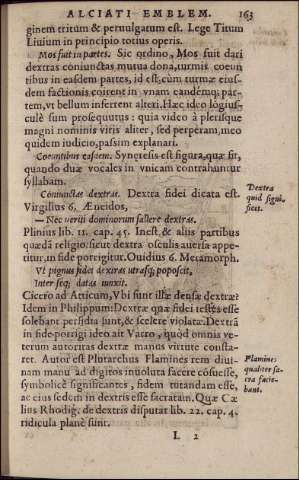 ALCIATI EMBLEM. 163
ginem tritum & peruulgatum est. Lege Titum
Liuium in principio totius operis.
Mos fuit in partes. Sic ordino, Mos fuit dari
dextras coniunctas mutua dona, turmis coeun
tibus in easdem partes, id est, cùm turmæ eius-
dem factionis coirent in vnam eandémq; par-
tem, vt bellum inferrent alteri. Hæc ideo lōgius-
culè sum prosequutus: quia video à plerisque
magni nominis viris aliter, sed perperam, meo
quidem iudicio, passim explanari.
Coeuntibus easdem. Synæresis est figura, quæ fit,
quando duæ vocales in vnicam contrahuntur
syllabam.
Coniunctas dextras. Dextra fidei dicata est.
Virgilius 6. Æneidos,
Dextra
quid signi-
ficet.
— Nec veriti dominorum fallere dextras.
Plinius lib. 11. cap. 45. Inest, & aliis partibus
quædā religio: sicut dextra osculis auersa appe-
titur, in fide porrigitur. Ouidius 6. Metamorph.
Vt pignus fidei dextras utrasq; poposcit,
Inter seq; datas iunxit.
Cicero ad Atticum, Vbi sunt illæ densæ dextræ?
Idem in Philippum: Dextræ quæ fidei testes esse
solebant perfidia sunt, & scelere violatæ. Dextrā
in fide porrigi ideo ait Varro, quòd omnis ve-
terum autoritas dextræ manus virtute consta-
ret. Autor est Plutarchus Flamines rem diui-
nam manu ad digitos inuoluta facere cōsuesse,
symbolicè significantes, fidem tutandam esse,
ac eius sedem in dextris esse sacratam. Quæ Cæ
lius Rhodig. de dextris disputat lib. 22. cap. 4.
ridicula planè sunt.
Flamines
qualiter sa-
cra facie-
bant.
L 2